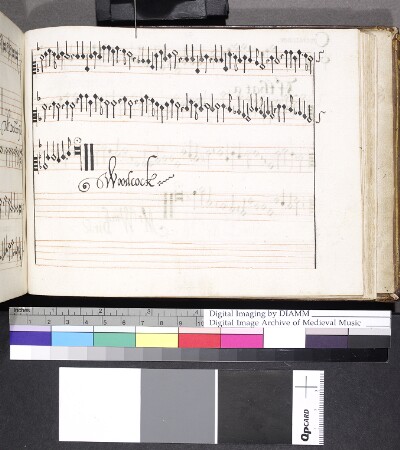 Woodcock
inches 1 2
1 2 3 4 5 6 7 8 9 10
Digital Imaging by DIAMM
Digital Image Archive of Medieval Music
QPCARD